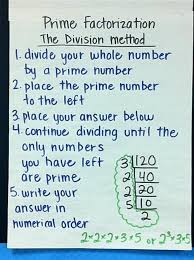 Prime Factorization
The Division method
1. divide your whole number
by a prime number
2. place the prime number
to the left
3 place your answer below
4. continue dividing until the
only numbers
you have left
are prime
5. write your
answer in
numerial order
3 120
2 40
2 20
5 10
2
2×2×2×3×5 or 2³×3×5